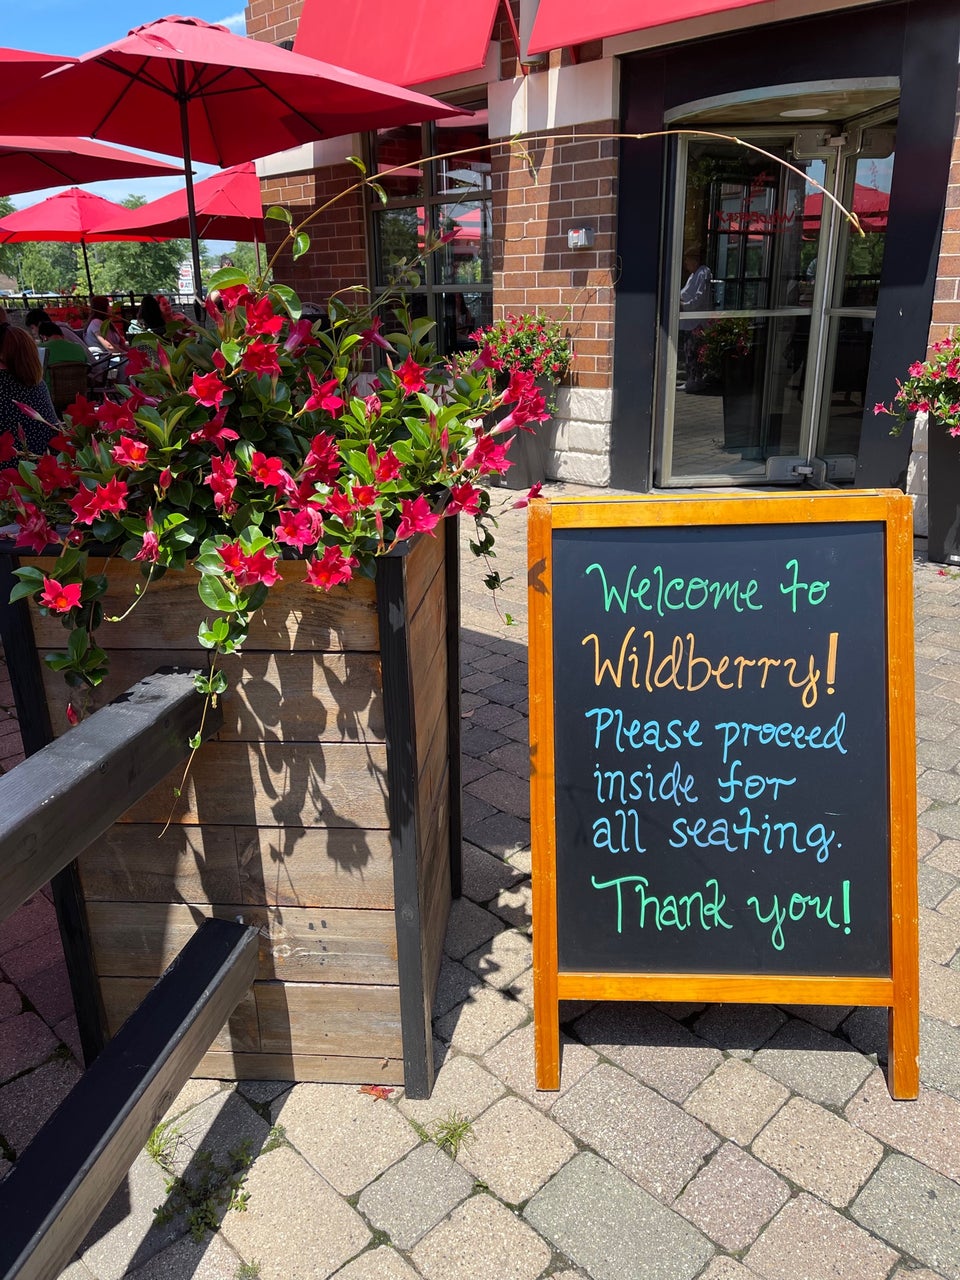 Welcome to
Wildberry!
Please proceed
inside for
all seating.
Thank you!